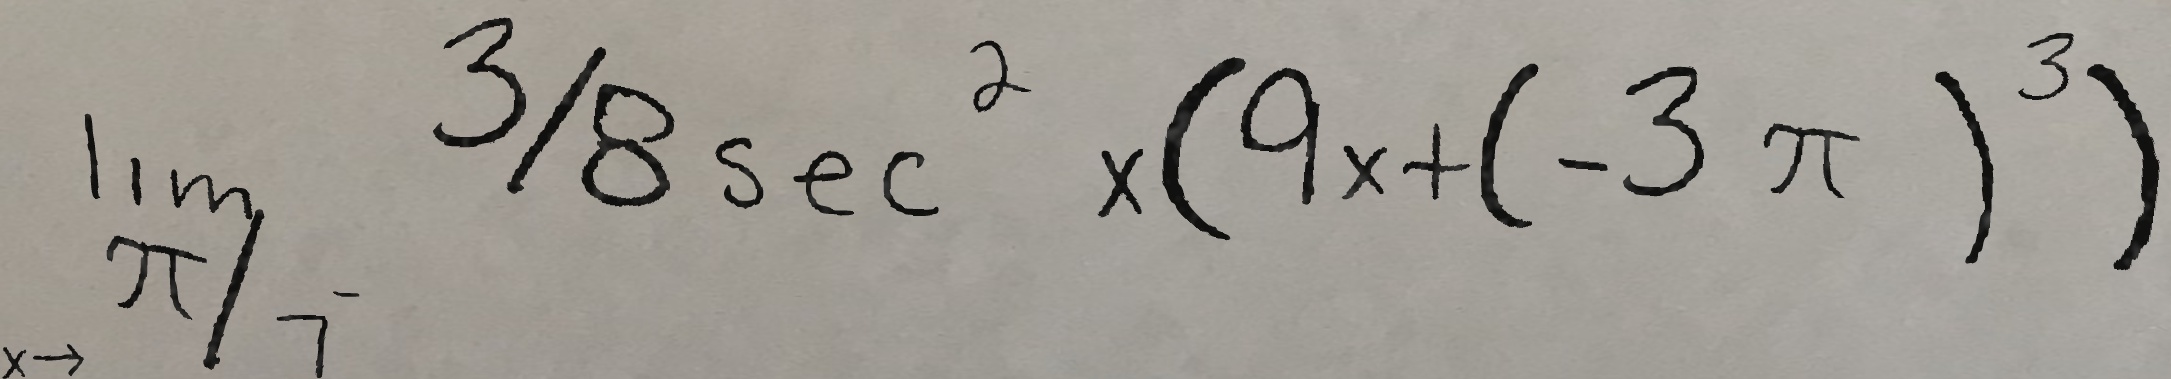 lim x→π/7⁻ 3/8 sec² x(9x+(-3π)³)